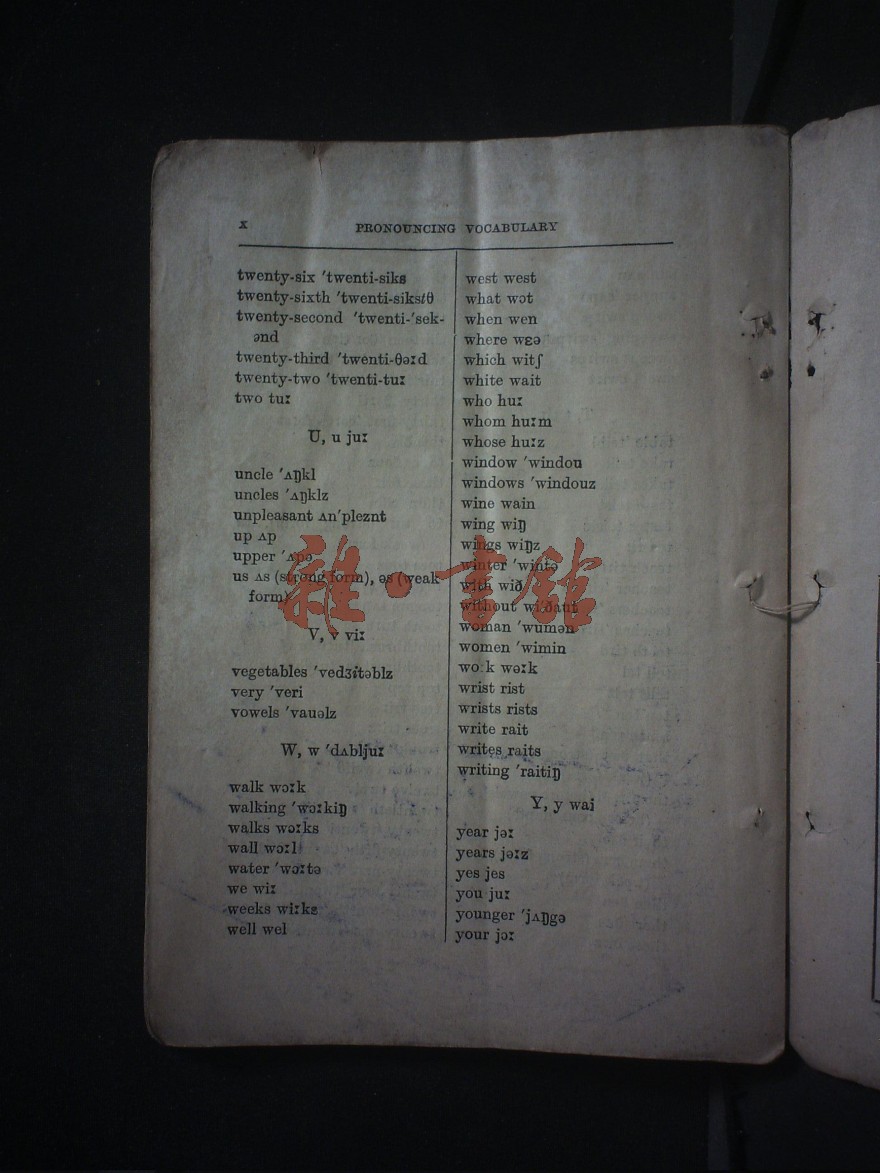 x
PRONOUNCING VOCABULARY
twenty-six ˈtwenti-siks
twenty-sixth ˈtwenti-siks𝑡θ
twenty-second ˈtwenti-ˈsek-
ənd
twenty-third ˈtwenti-θəːd
twenty-two ˈtwenti-tuː
two tuː
U, u juː
uncle ˈʌŋkl
uncles ˈʌŋklz
unpleasant ʌnˈpleznt
up ʌp
upper ˈʌpə
us ʌs (strong form), əs (weak
form)
V, v viː
vegetables ˈvedʒ𝑖təblz
very ˈveri
vowels ˈvauəlz
W, w ˈdʌbljuː
walk wɔːk
walking ˈwɔːkiŋ
walks wɔːks
wall wɔːl
water ˈwɔːtə
we wiː
weeks wiːks
well wel
west west
what wɔt
when wen
where wɛə
which witʃ
white wait
who huː
whom huːm
whose huːz
window ˈwindou
windows ˈwindouz
wine wain
wing wiŋ
wings wiŋz
winter ˈwintə
with wið
without wiˈðaut
woman ˈwumən
women ˈwimin
work wəːk
wrist rist
wrists rists
write rait
writes raits
writing ˈraitiŋ
Y, y wai
year jəː
years jəːz
yes jes
you juː
younger ˈjʌŋgə
your jɔː
雜·書館